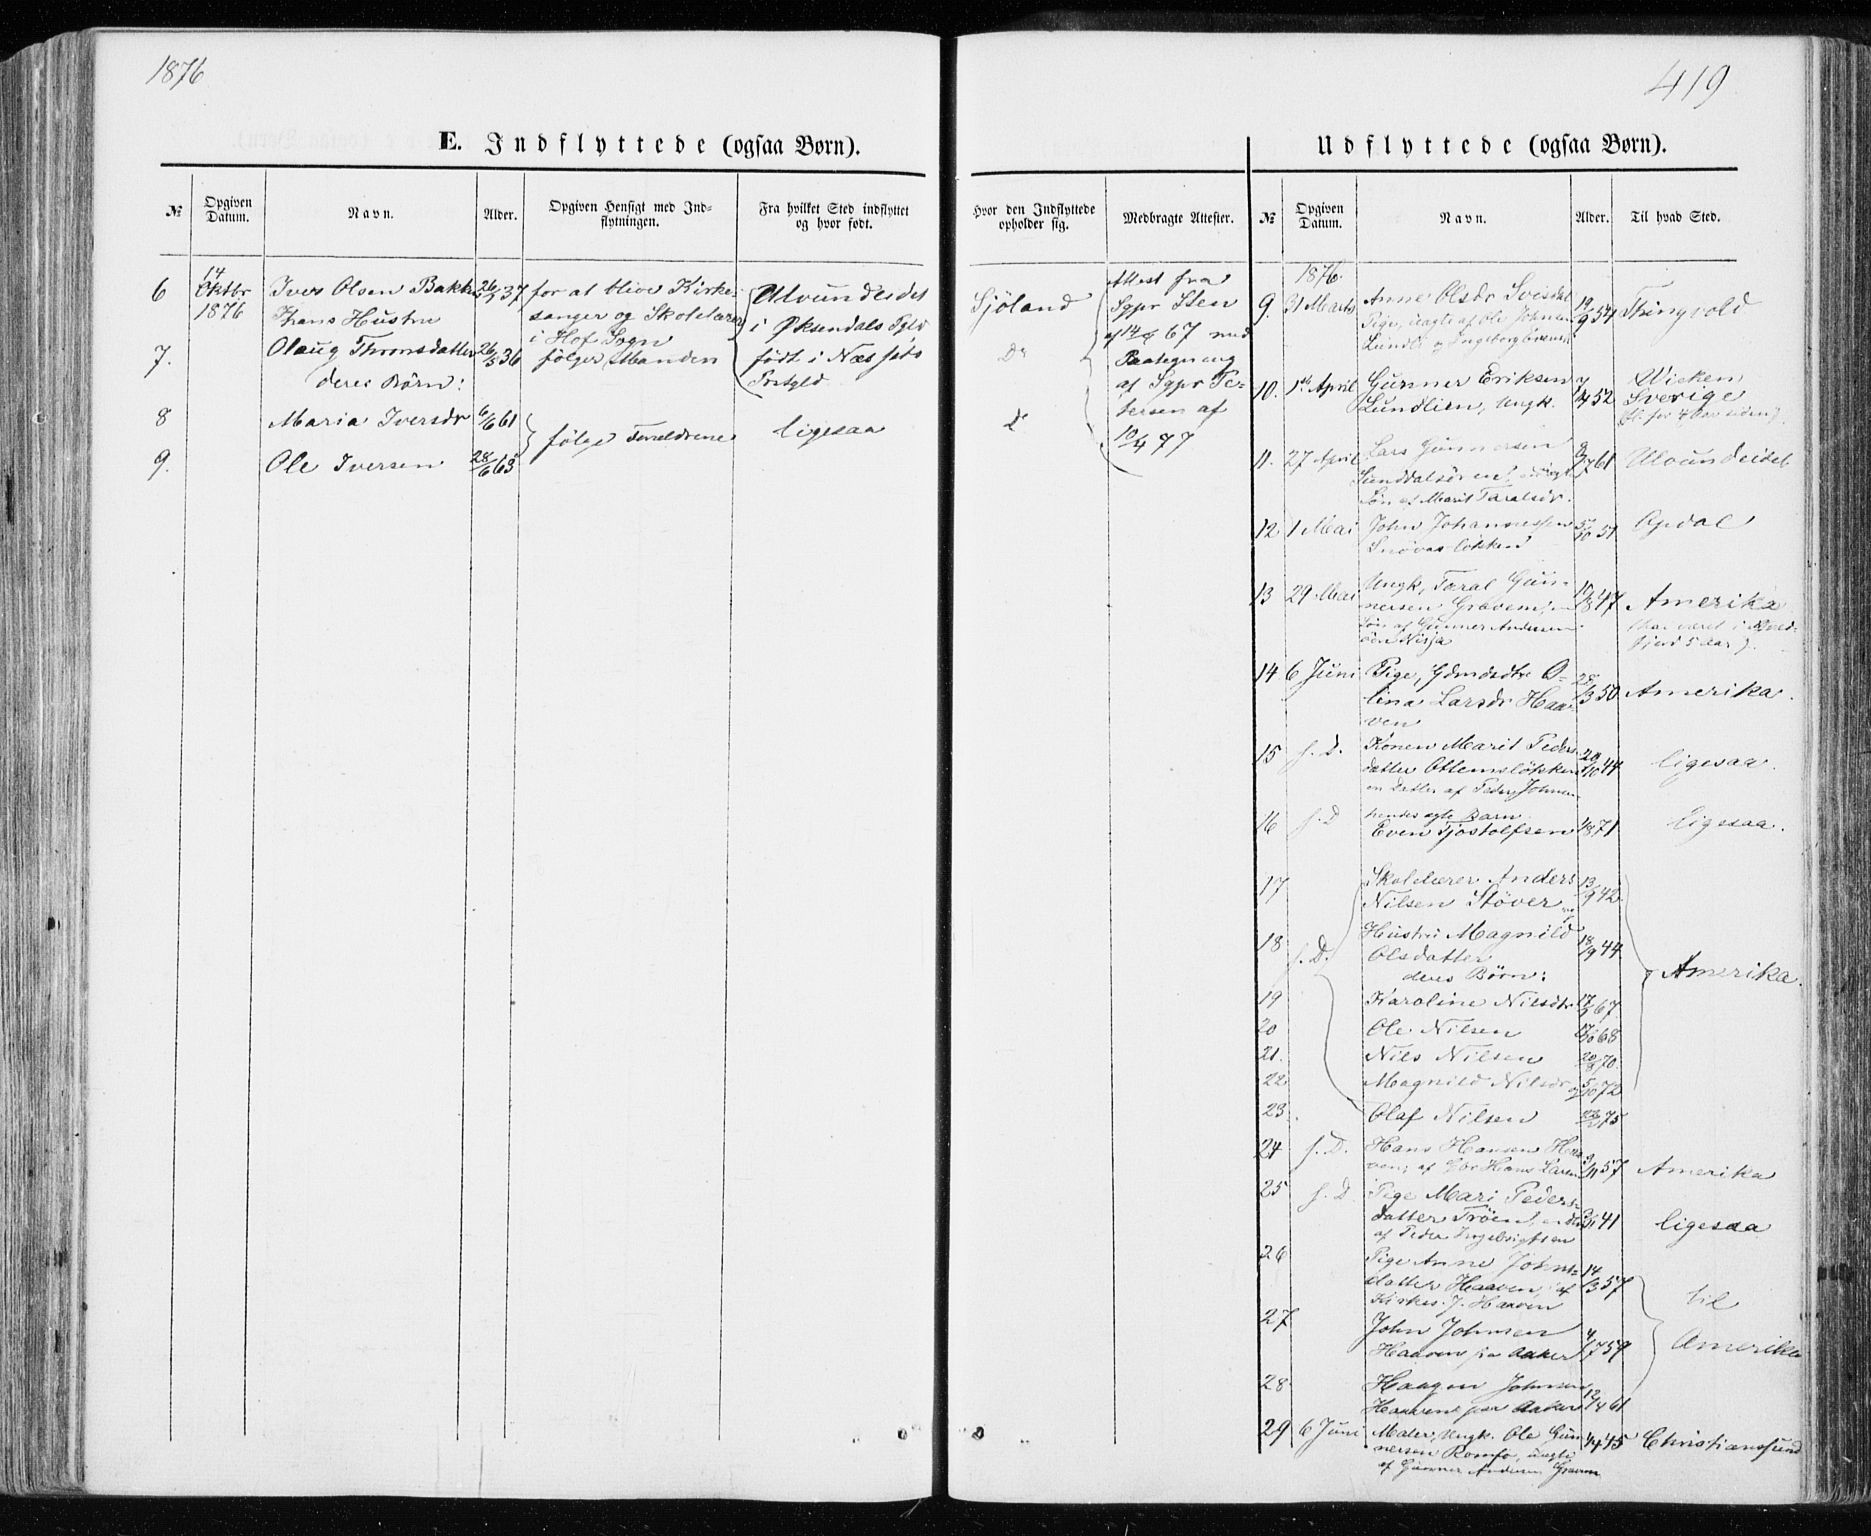 1876
E. Indflyttede (ogsaa Børn).
№
Opgiven Datum.
Navn.
Alder.
Opgiven Hensigt med Ind-
flytningen.
Fra hvilket Sted indflyttet
og hvor født.
6
14 Oktbr
1876
Iver Olsen Bakke
26/ 37
for at blive Kirke-
sanger og Skolelærer
i Hof Sogn
Ulvundeidet
i Øksendals Pgld
født i Næssets
Prstgld
hans Hustru
7.
Olaug Thronsdatter
26/5 36
følger Manden
deres Børn:
8
Maria Iversdr
6/6 61
følge Forældrene
ligesaa
9.
Ole Iversen
28/6 63
419
Udflyttede (ogsaa Børn).
Hvor den Indflyttede
opholder sig.
Medbragte Attester.
№
Opgiven Datum.
Navn.
Alder.
Til hvad Sted.
Sjöland
Do
Attest fra
Sgpr Sten
af 14/ 67 med
Paategning
af Sgpr Pe-
tersen af
10/4 77
1876
9.
31 Marts
Anne Olsdr Svisdal
Pige, uægte af Ole Johnsen
Lundli og Ingeborg
19/9 54
Thingvold
10.
1ste April
Gunner Eriksen
Lundlien, Ungk.
52
Wiken
Sverige
for 4 Aar siden).
11.
27 April
Lars Gunnersen
Sunddalsören,
Sön af Marit Taralsdr.
/7 61
Ulvundeidet
12
1 Mai
John Johannessen
Snövasløkken
5/10 51
Opdal
13
29 Mai
Ungk. Taral Gun-
nersen Gravem,
Sön af Gunner Andersen
Nisja
19/8 47
Amerika
(har været i
fjord 5 Aar).
14
6 Juni
Pige, Gdmdsdtr O-
lina Larsdr Haa-
ven
28/3 50
Amerika.
15
s. D.
Konen Marit Peders-
datter Ottemsløkken
en Datter af Peder Johnsen
20/10 44
ligesaa.
16
s. D
hendes ægte Barn
Even Tjöstolfsen
/8 71
ligesaa.
17
Skolelærer Anders
Nilsen Støver
13/9 42
18
s. D.
Hustru Magnild
Olsdatter
18/9 44
Amerika.
deres Børn:
19
Karoline Nilsdtr
17/ 67
20
Ole Nilsen
68
21.
Nils Nilsen
20/8 70.
22
Magnild Nilsdr
5/10 72
23.
Olaf Nilsen
75
24
s. D.
Hans Hansen Haa-
ven, af Hans Larsen
9/11 57
Amerika
25
s. D
Pige Mari Peders-
datter Tröen, en Dtr
af Peder Ingebrigtsen
41
ligesaa
26
Pige Anne Johns-
datter Haaven, af
Kirkes. J. Haaven
14/3 57
til
Amerika
27
John Johnsen
Haaven paa Aaker
4/7 59
28
Haagen Johnsen
Haaven paa Aaker
12/4 61
29
6 Juni
Maler, Ungk. Ole Gun-
nersen Romfo, uægte
af Gunner Andersen Gravem
/4 45
Christianssund